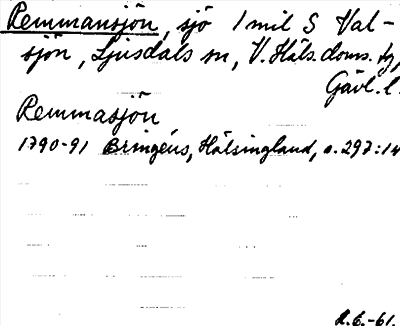 Remmansjön, sjö 1 mil S Val-
sjön, Ljusdals sn, V. Häls. doms.
Gävl. l.
Remmasjön
1790-91 Bringéus, Hälsingland, s. 297:14
R.E.-61.